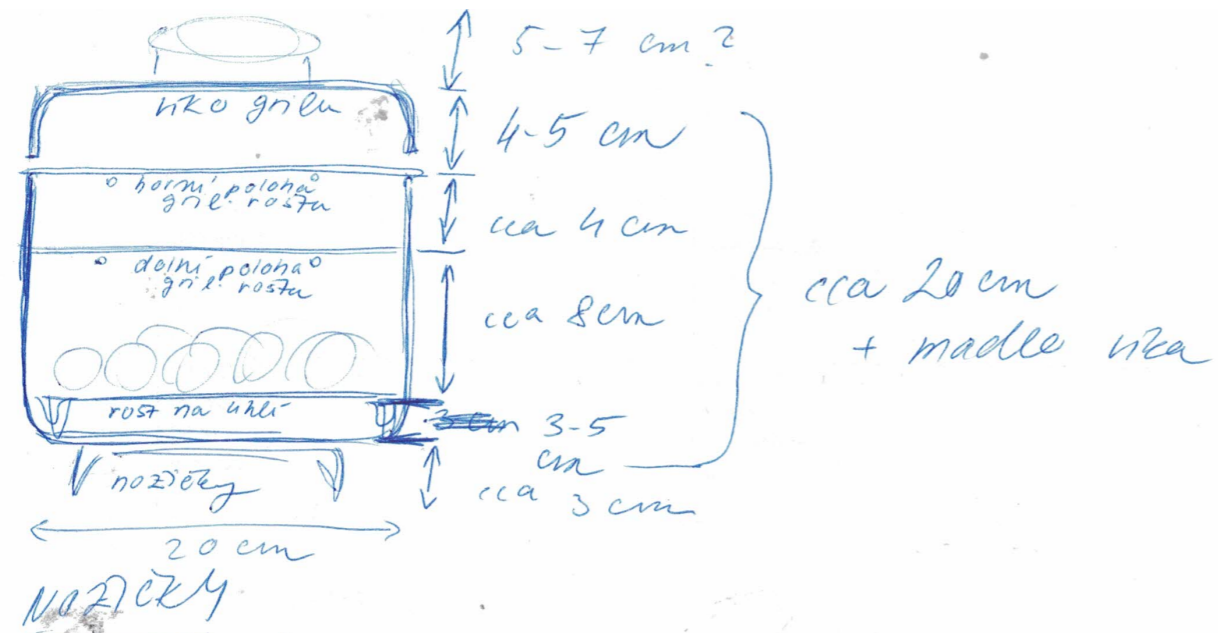 5-7 cm?
víko grilu
4-5 cm
horní poloha
gril. roštu
cca 4 cm
dolní poloha
gril. roštu
cca 8 cm
cca 20 cm
+ madlo víka
rošt na uhlí
3 cm 3-5
cm
nožičky
cca 3 cm
20 cm
NOŽIČKY